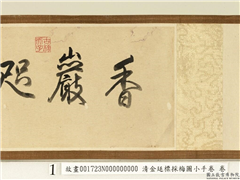 香巖咫
1 故畫001723N000000000 清金廷標採梅圖小手卷 卷
國立故宮博物院